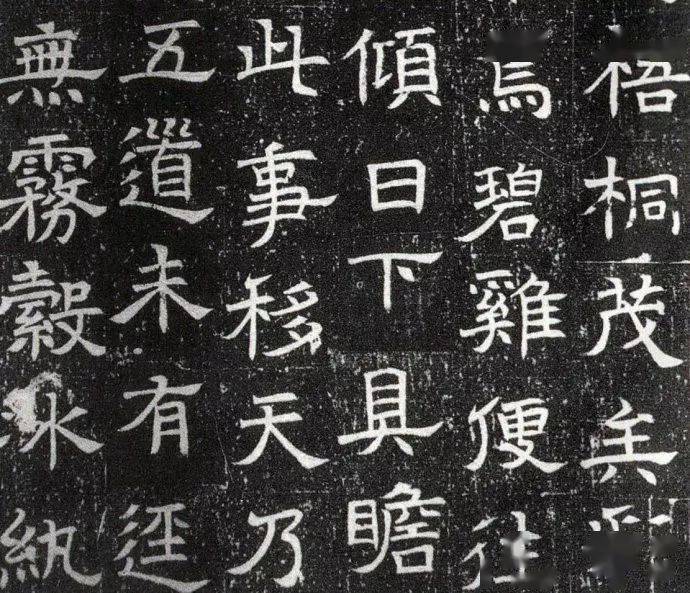 梧桐茂矣
焉碧雞便往
傾日下具瞻
此事移天乃
五道未有逕
無霧縠冰紈